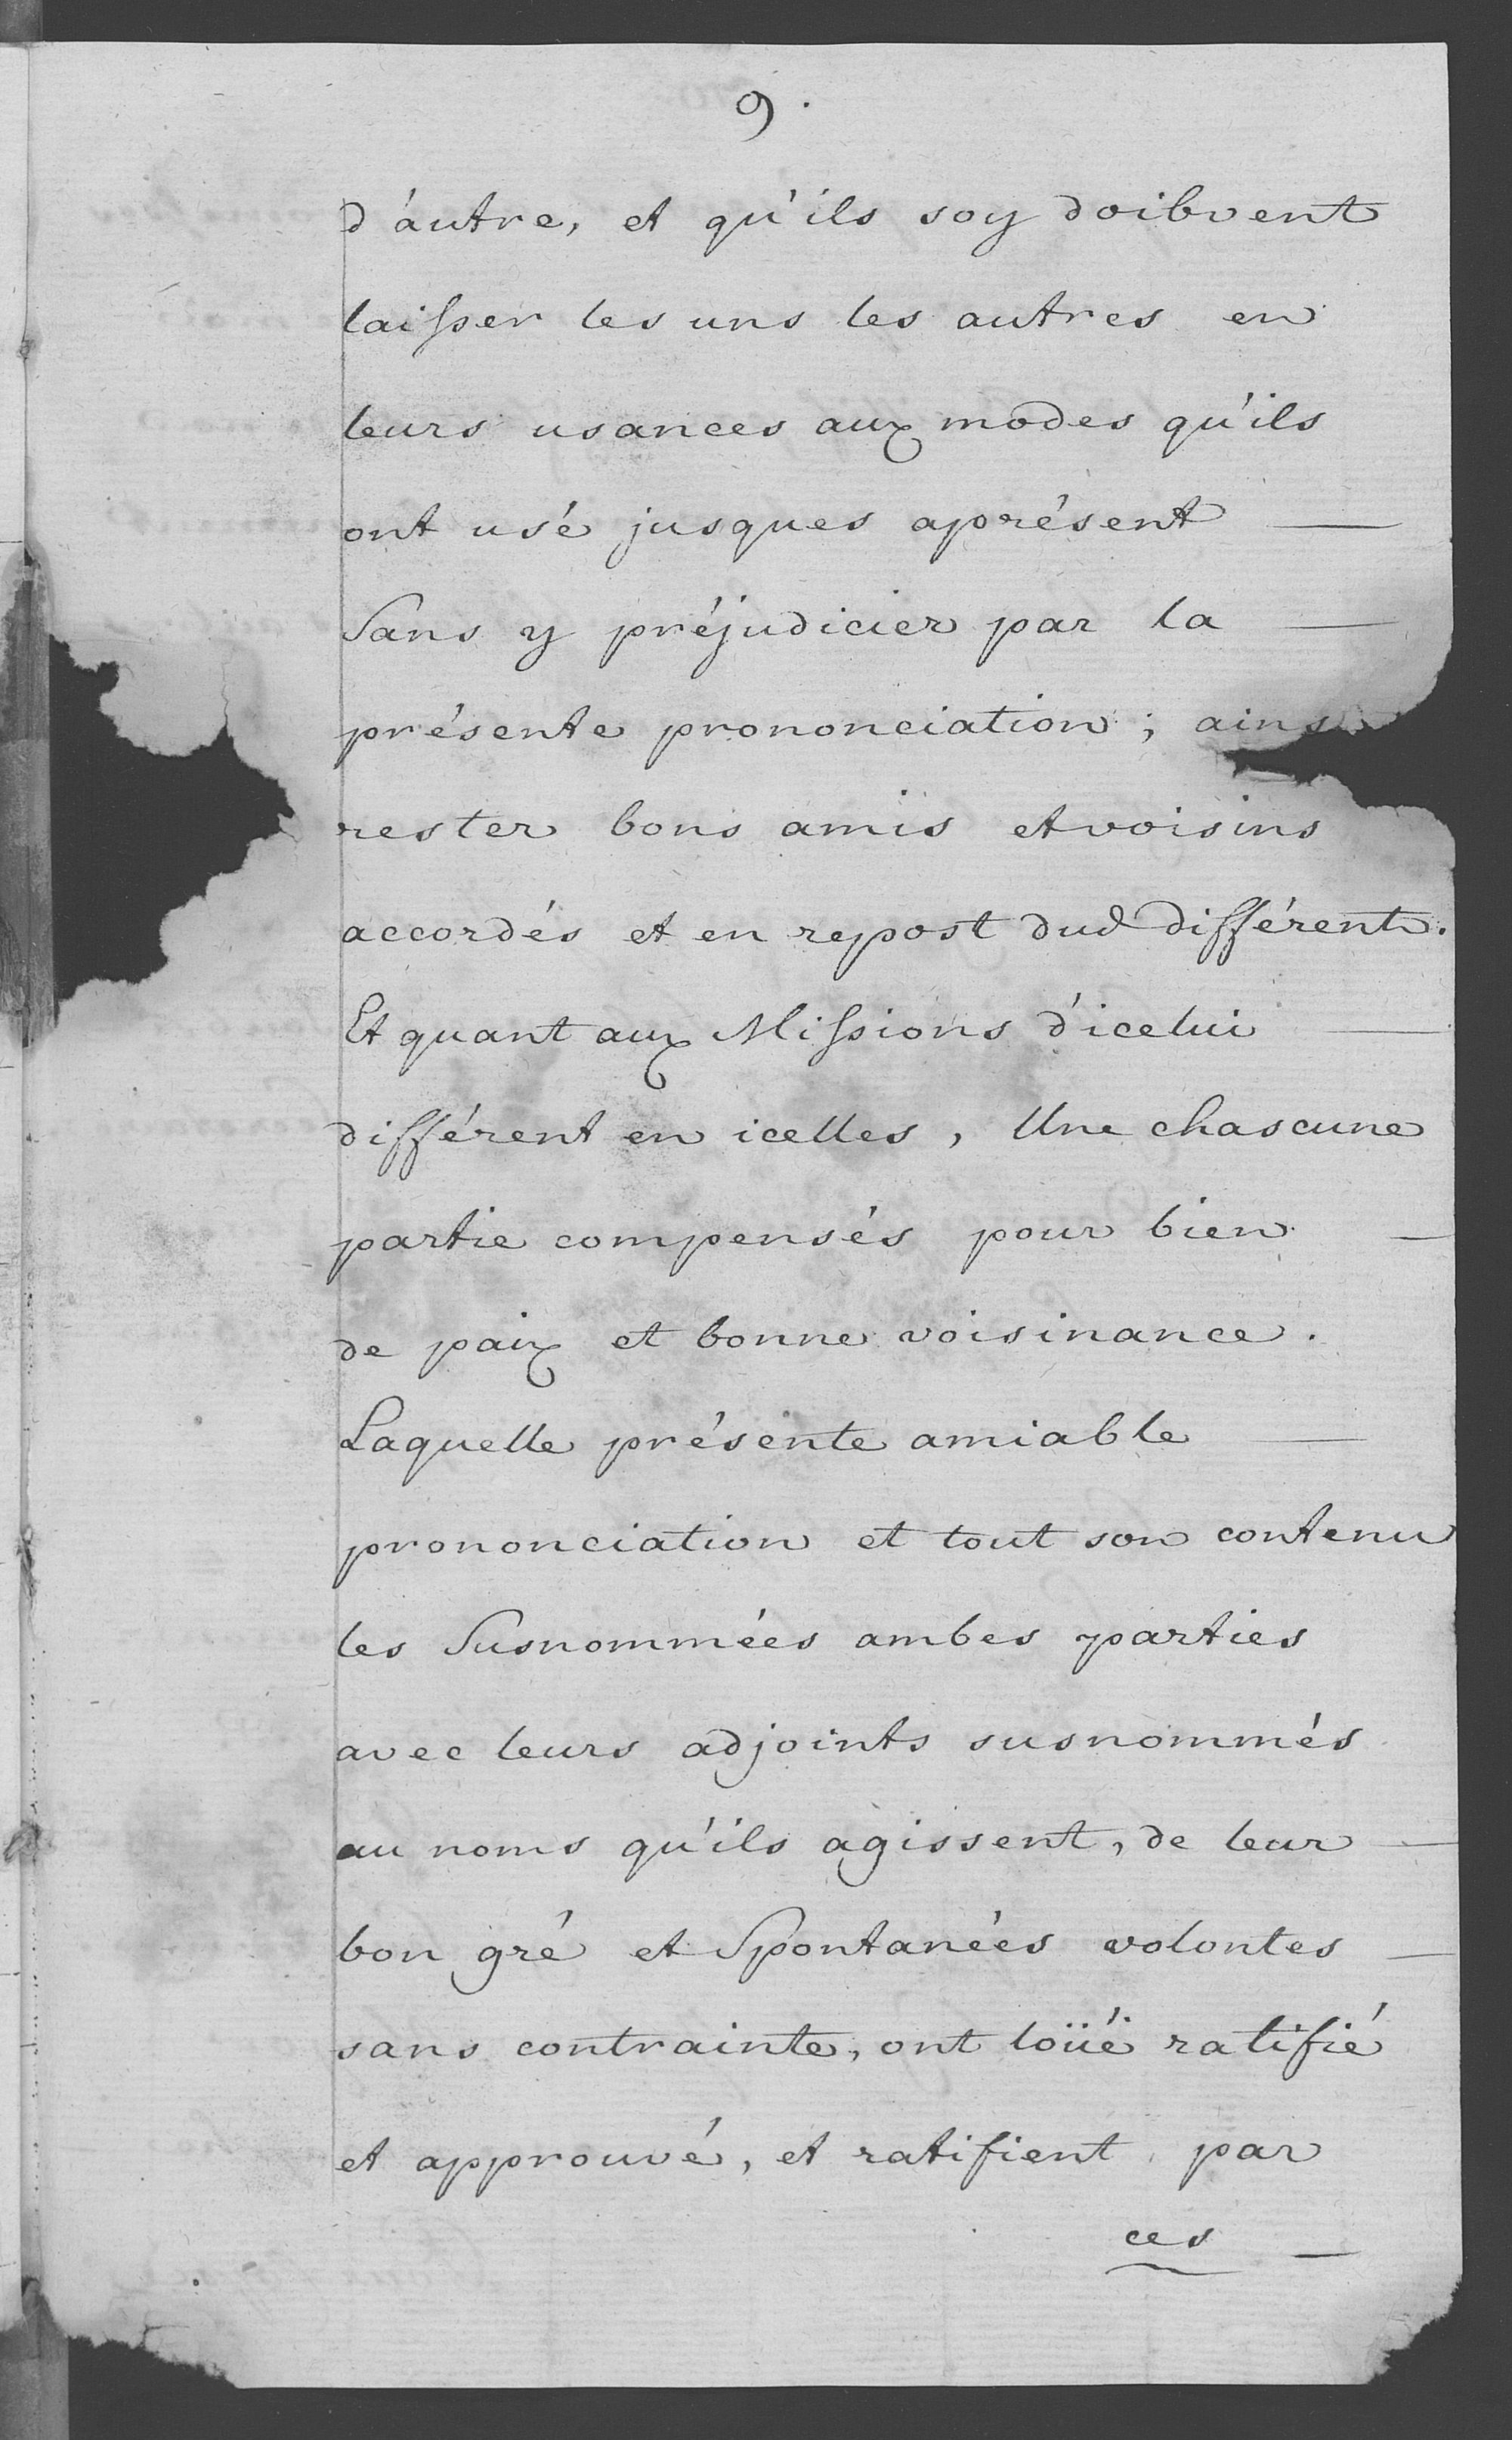 9.
d'autre, et qu'ils soy doibvent
laisser les uns les autres en
leurs usances aux modes qu'ils
ont usé jusques aprésent —
Sans y préjudicier par la —
présente prononciation ; ains
rester bons amis et voisins
accordés et en repost dud différent.
Et quant aux Missions d'icelui —
différent en icelles, Une chascune
partie compensés pour bien —
de paix et bonne voisinance.
Laquelle présente amiable —
prononciation et tout son contenu
les Susnommées ambes parties
avec leurs adjoints susnommés
au noms qu'ils agissent, de leur —
bon gré et Spontanées volontes —
sans contrainte, ont loüé ratifié
et approuvé, et ratifient par
ces —